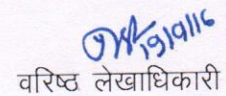 19/9/16
वरिष्ठ लेखाधिकारी